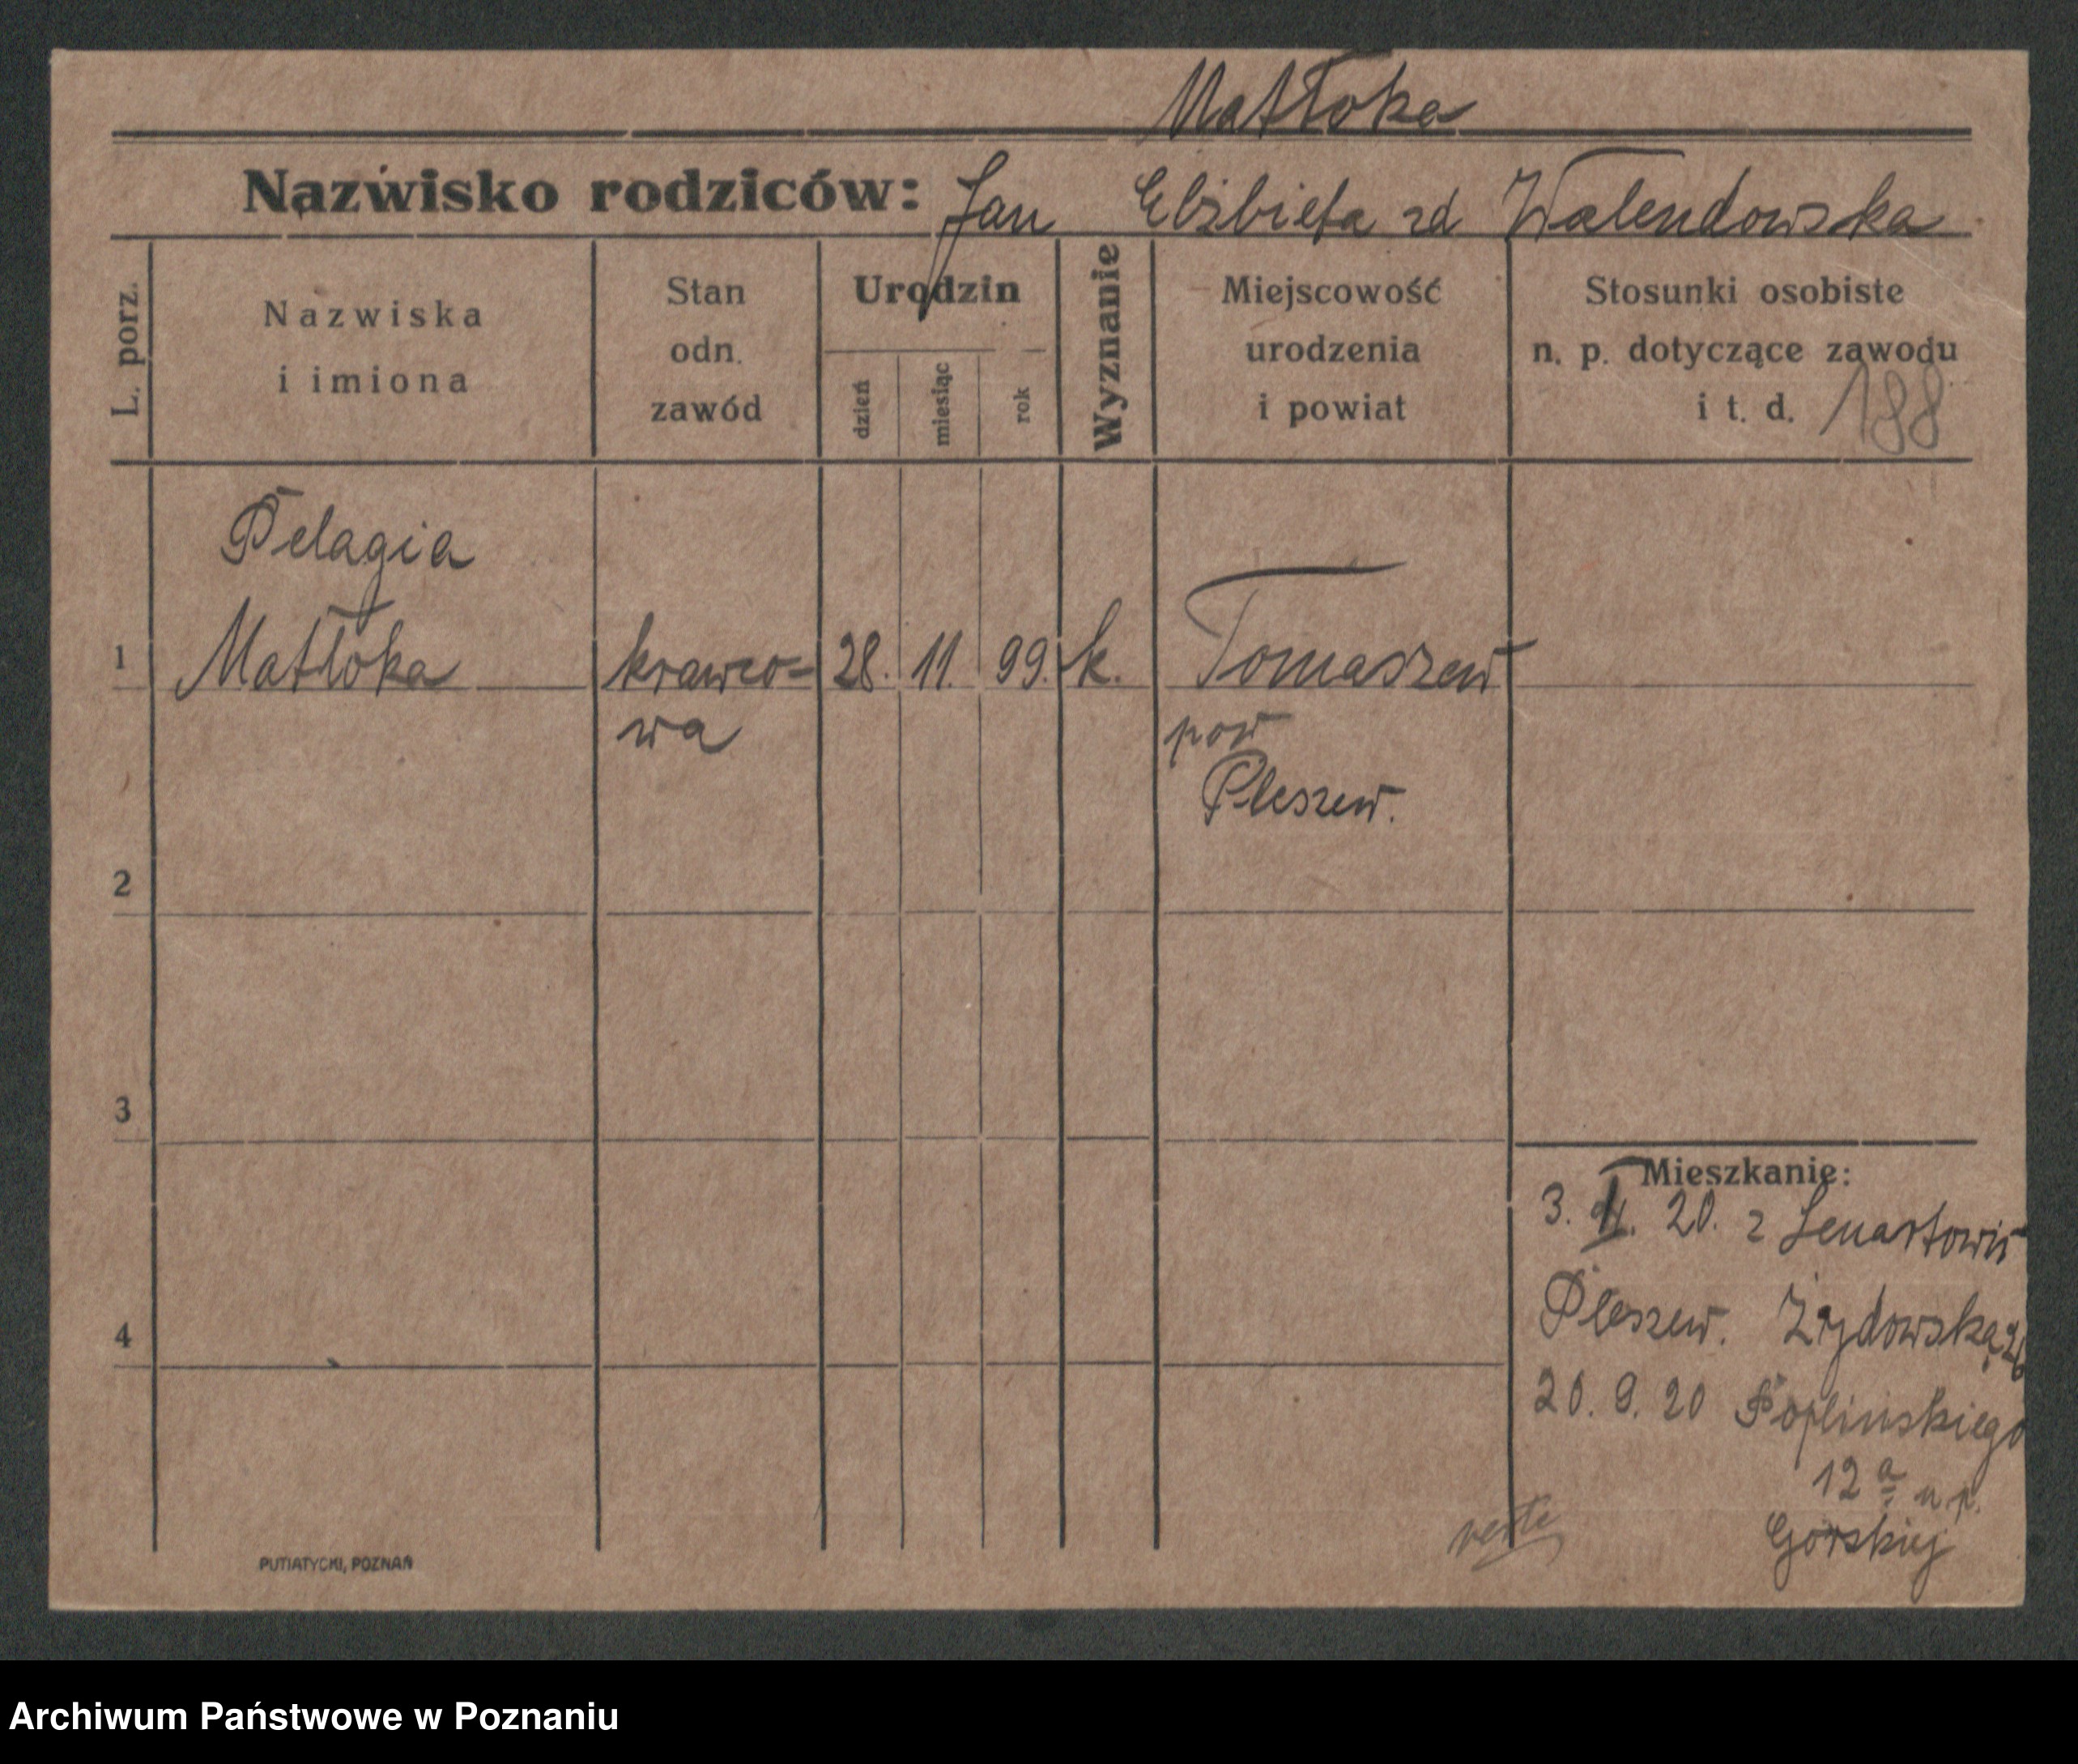 Matłoka
Nazwisko rodziców: Jan Elżbieta zd Walendowska
L. porz.
Nazwiska
i imiona
Stan
odn.
zawód
Urodzin
dzień
miesiąc
rok
Wyznanie
Miejscowość
urodzenia
i powiat
Stosunki osobiste
n. p. dotyczące zawodu
i t. d. 188
Pelagia
1 Matłoka krawco= 28. 11. 99. k. Tomaszew
wa pow
Pleszew.
2
3
Mieszkanie:
3. II. 20. z
Pleszew. Żydowska 26
4
20. 9. 20
12 a u p.
Górskiej
verte
PUTIATYCKI, POZNAŃ
Archiwum Państwowe w Poznaniu